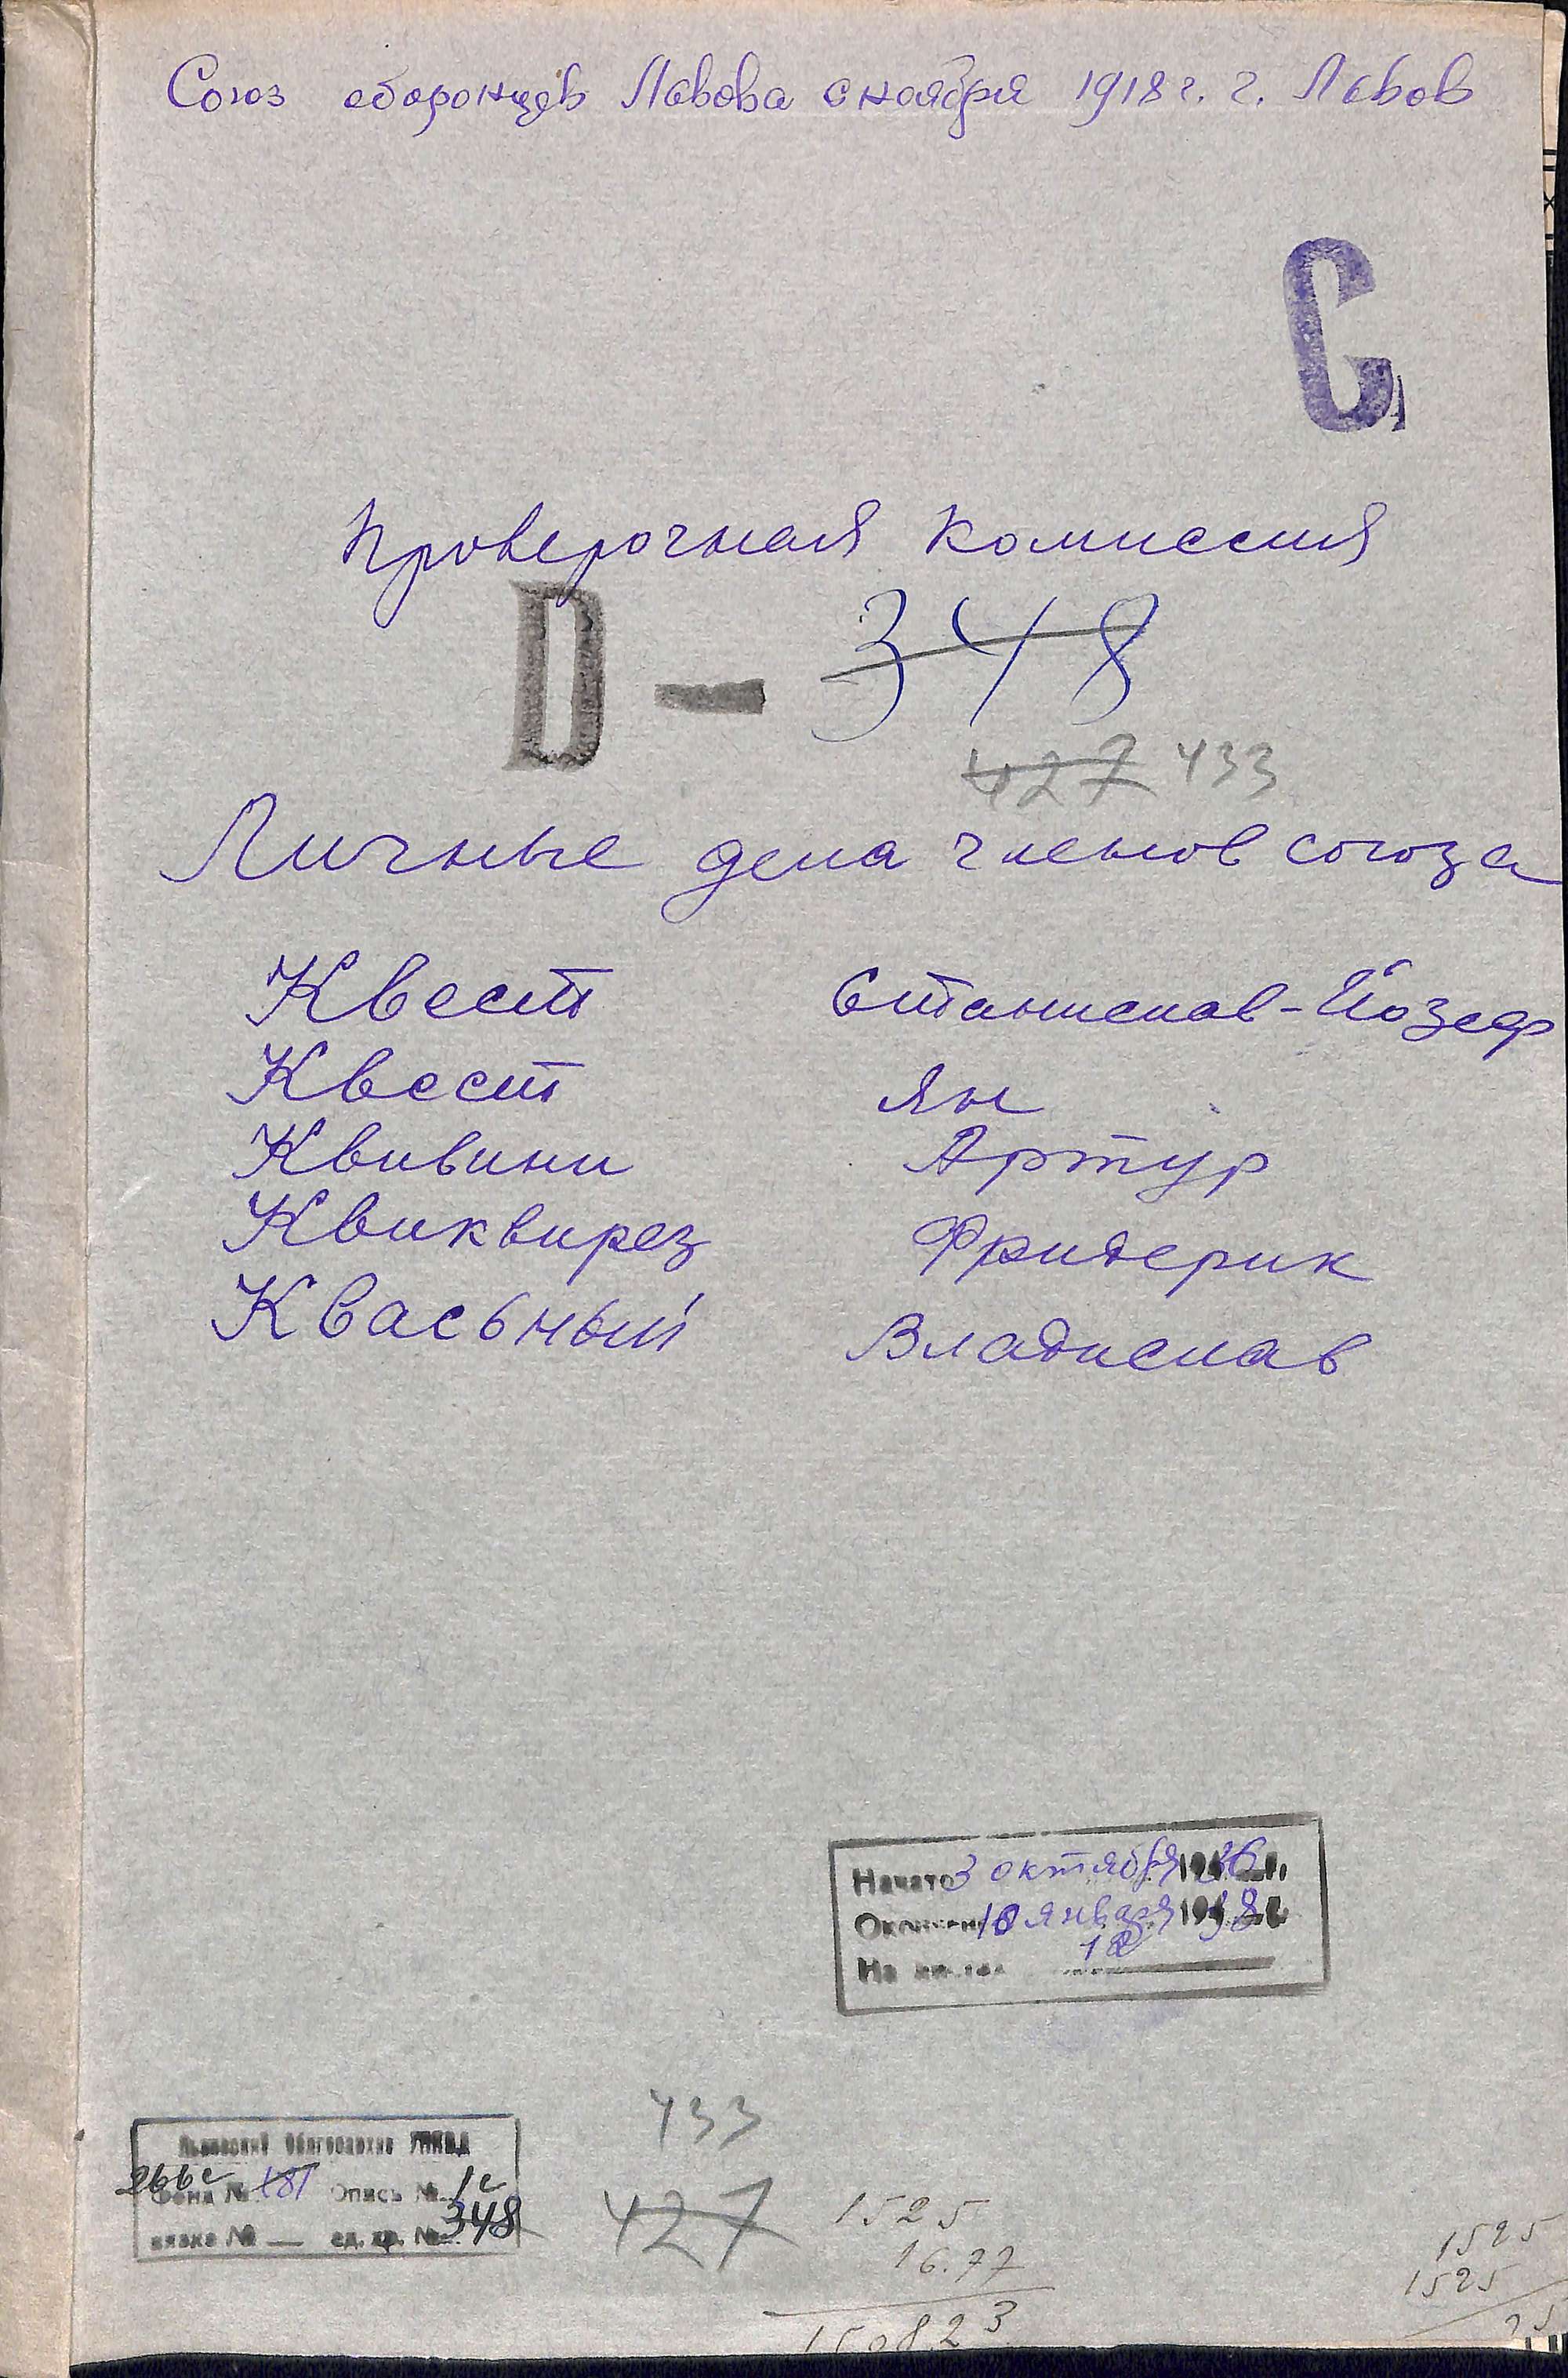 Союз оборонцев Львова с ноября 1918 г. г. Львов
С
Проверочная комиссия
D — 348
427 433
Личные дела членов союза
Квест Станислав-Йозеф
Квест Ян
Квивини Артур
Квиквирез Фридерик
Квасьный Владислав
Начато 3 октября 1936 г.
Окончено 10 января 1938 г.
На
433
Львовский Облгосархив УНКВД
266с Фонд № 181 Опись № 1с
вязка № — ед. хр. № 348
427
1525
16.77
1525
1525